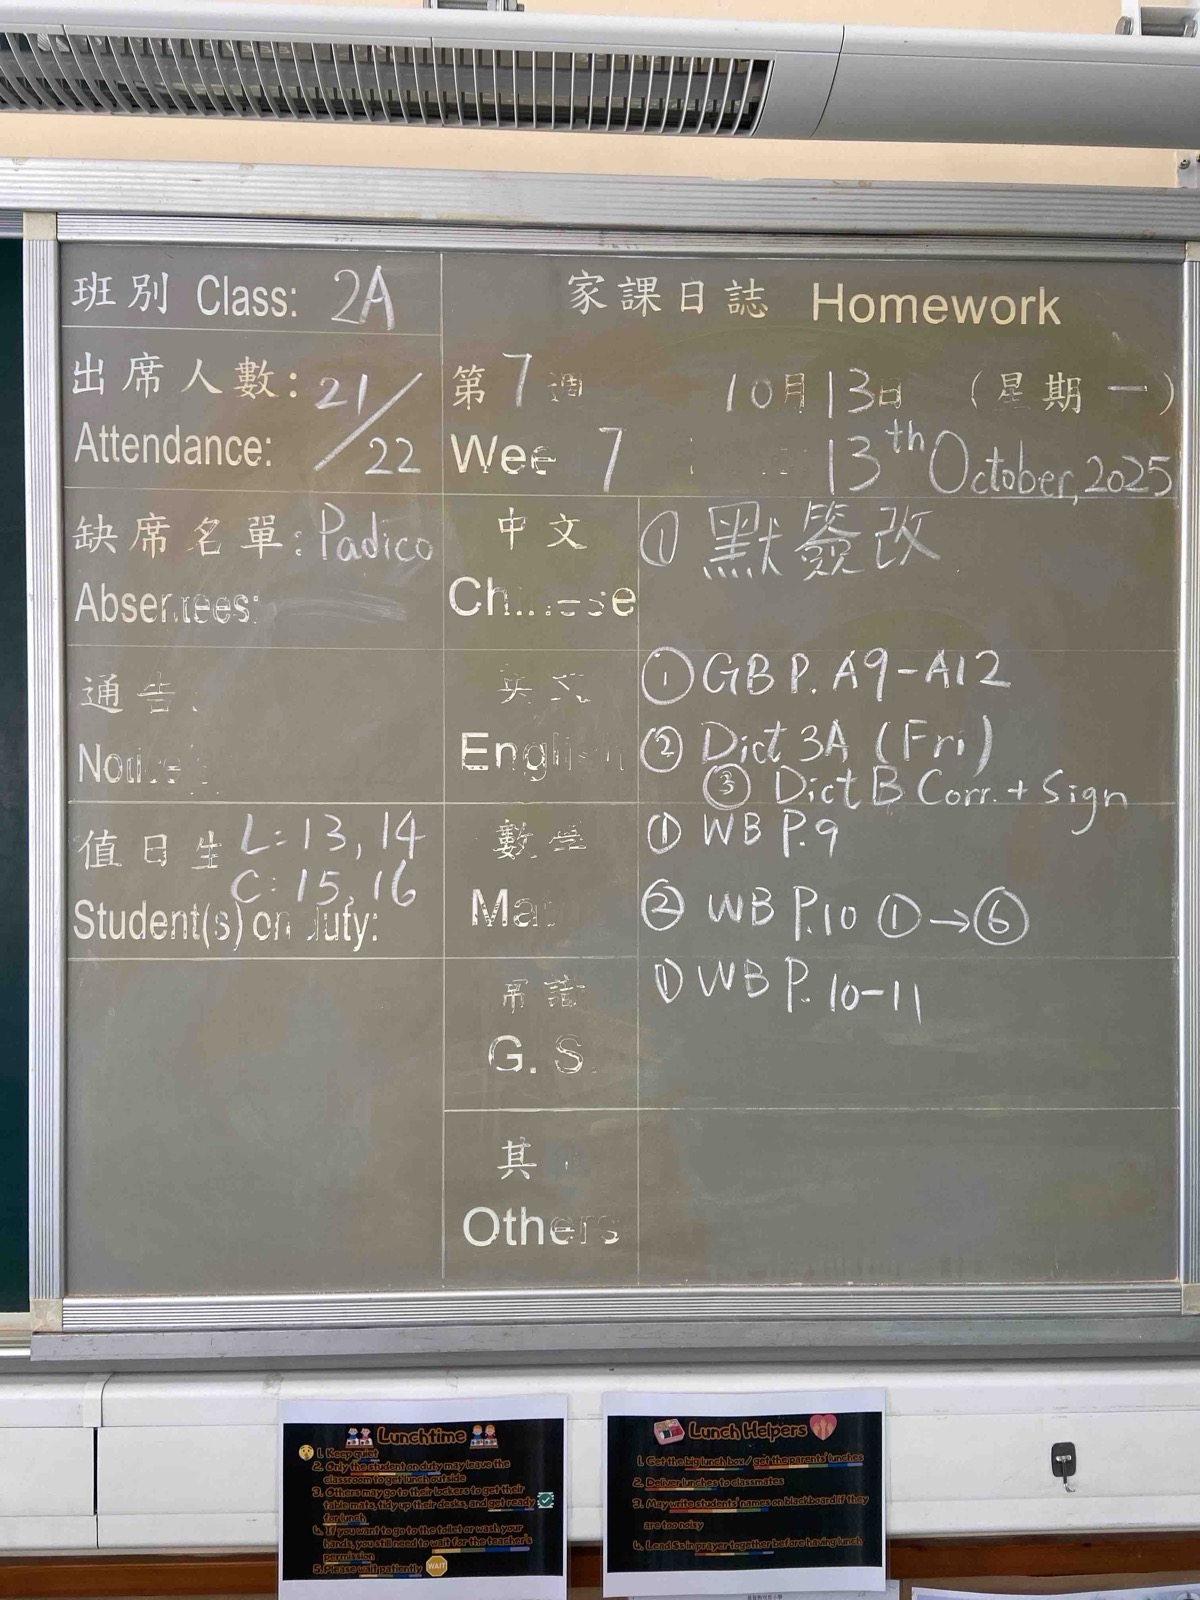 班別 Class: 2A
出席人數: 21/22
Attendance:
缺席名單: Padico
Absentees:
通告:
值日生 L: 13, 14
C: 15, 16
Student(s) on duty:
家課日誌 Homework
第7週 10月13日 (星期一)
Week 7 13th October, 2025
中文 ① 默簽改
Chinese
英文 ① GB P. A9-A12
English ② Dict 3A (Fri)
③ Dict B Corr. + Sign
數學 ① WB P.9
② WB P.10 ①→⑥
① WB P. 10-11
G. S.
其
Others
Lunchtime
1. Keep quiet
2. Only the student on duty may leave the
classroom to get lunch outside
3. Others may go to their lockers to get their
table mats, tidy up their desks, and get ready
for lunch
4. If you want to go to the toilet or wash your
hands, you still need to wait for the teacher's
permission
5. Please wait patiently WAIT
Lunch Helpers
1. Get the big lunch box / get the parents' lunches
2. Deliver lunches to classmates
3. May write students' names on blackboard if they
are too noisy
4. Lead Ss in prayer together before having lunch